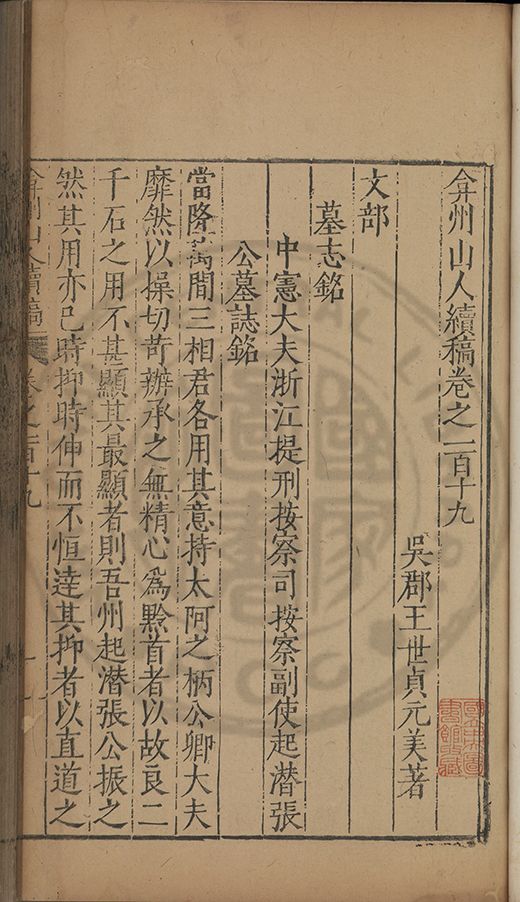 弇州山人續稿卷之一百十九
吳郡王世貞元美著
文部
墓志銘
中憲大夫浙江提刑按察司按察副使起潛張
公墓誌銘
當隆萬間三相君各用其意持太阿之柄公卿大夫
靡然以操切苛辦承之無精心為黔首者以故良二
千石之用不甚顯其最顯者則吾州起潛張公振之
然其用亦已時抑時伸而不恒達其抑者以直道之
弇州山人續稿
卷之百十九
一